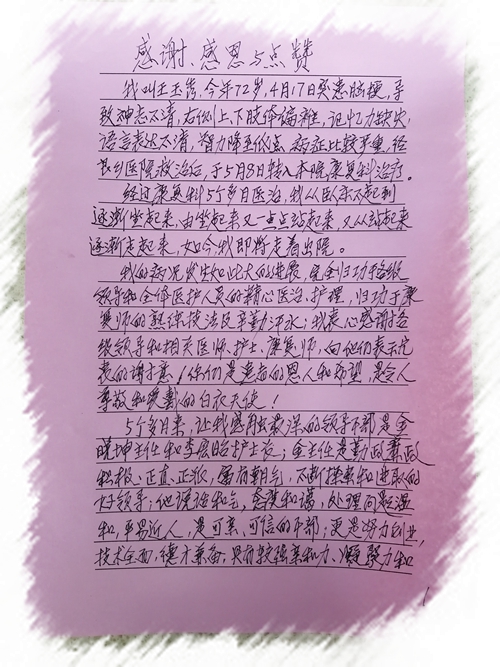 感谢、感恩与点赞
我叫王玉，今年72岁，4月17日突患脑梗，导
致神志不清，右侧上、下肢体偏瘫，记忆力缺失，
语言表达不清，智力降至低点，病症比较严重，经
良乡医院救治后，于5月8日转入本院康复科治疗。
经过康复科5个多月医治，我从卧床不起到
逐渐坐起来，由坐起来又一点点站起来，又从站起来
逐渐走起来，如今我即将走着出院。
我的病况发生如此大的进展，完全归功于各级
领导和全体医护人员的精心医治、护理，归功于康
复师的熟练技法及辛勤汗水；我衷心感谢各
级领导和相关医师、护士、康复师，向他们表示无
衷的谢意！你们是患者的恩人和希望，是令人
尊敬和爱戴的白衣天使！
5个多月来，让我感触最深的领导干部是金
晓坤主任和李护士长；金主任是勤政廉政
积极、正直、正派，富有朝气，不断探索和进取的
好领导；他说话和气，态度和蔼，处理问题温
和，平易近人，是可亲、可信的干部；更是努力创业，
技术全面，德才兼备，具有较强亲和力、凝聚力和
1